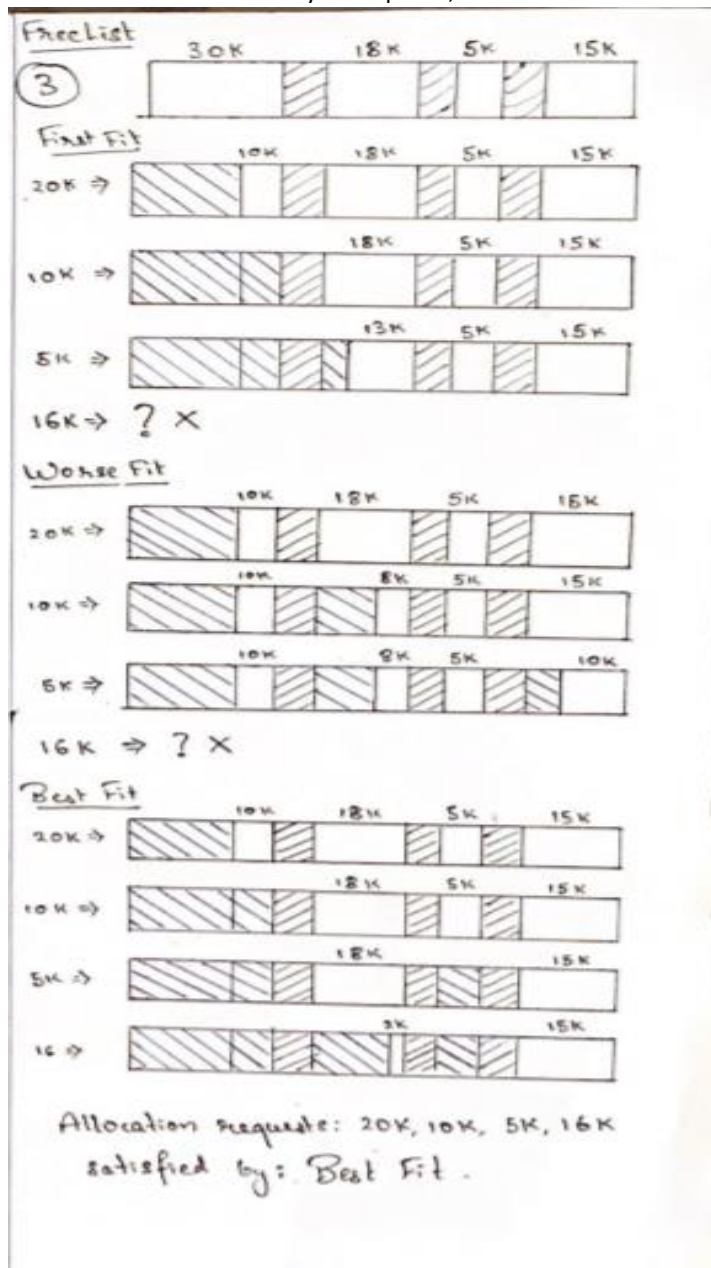 Free List
30K 18K 5K 15K
3
First Fit
10K 18K 5K 15K
20K ⇒
18K 5K 15K
10K ⇒
13K 5K 15K
5K ⇒
16K ⇒ ? ×
Worse Fit
10K 18K 5K 15K
20K ⇒
10K 8K 5K 15K
10K ⇒
10K 8K 5K 10K
5K ⇒
16K ⇒ ? ×
Best Fit
10K 18K 5K 15K
20K ⇒
18K 5K 15K
10K ⇒
18K 15K
5K ⇒
2K 15K
16 ⇒
Allocation requests: 20K, 10K, 5K, 16K
satisfied by: Best Fit.